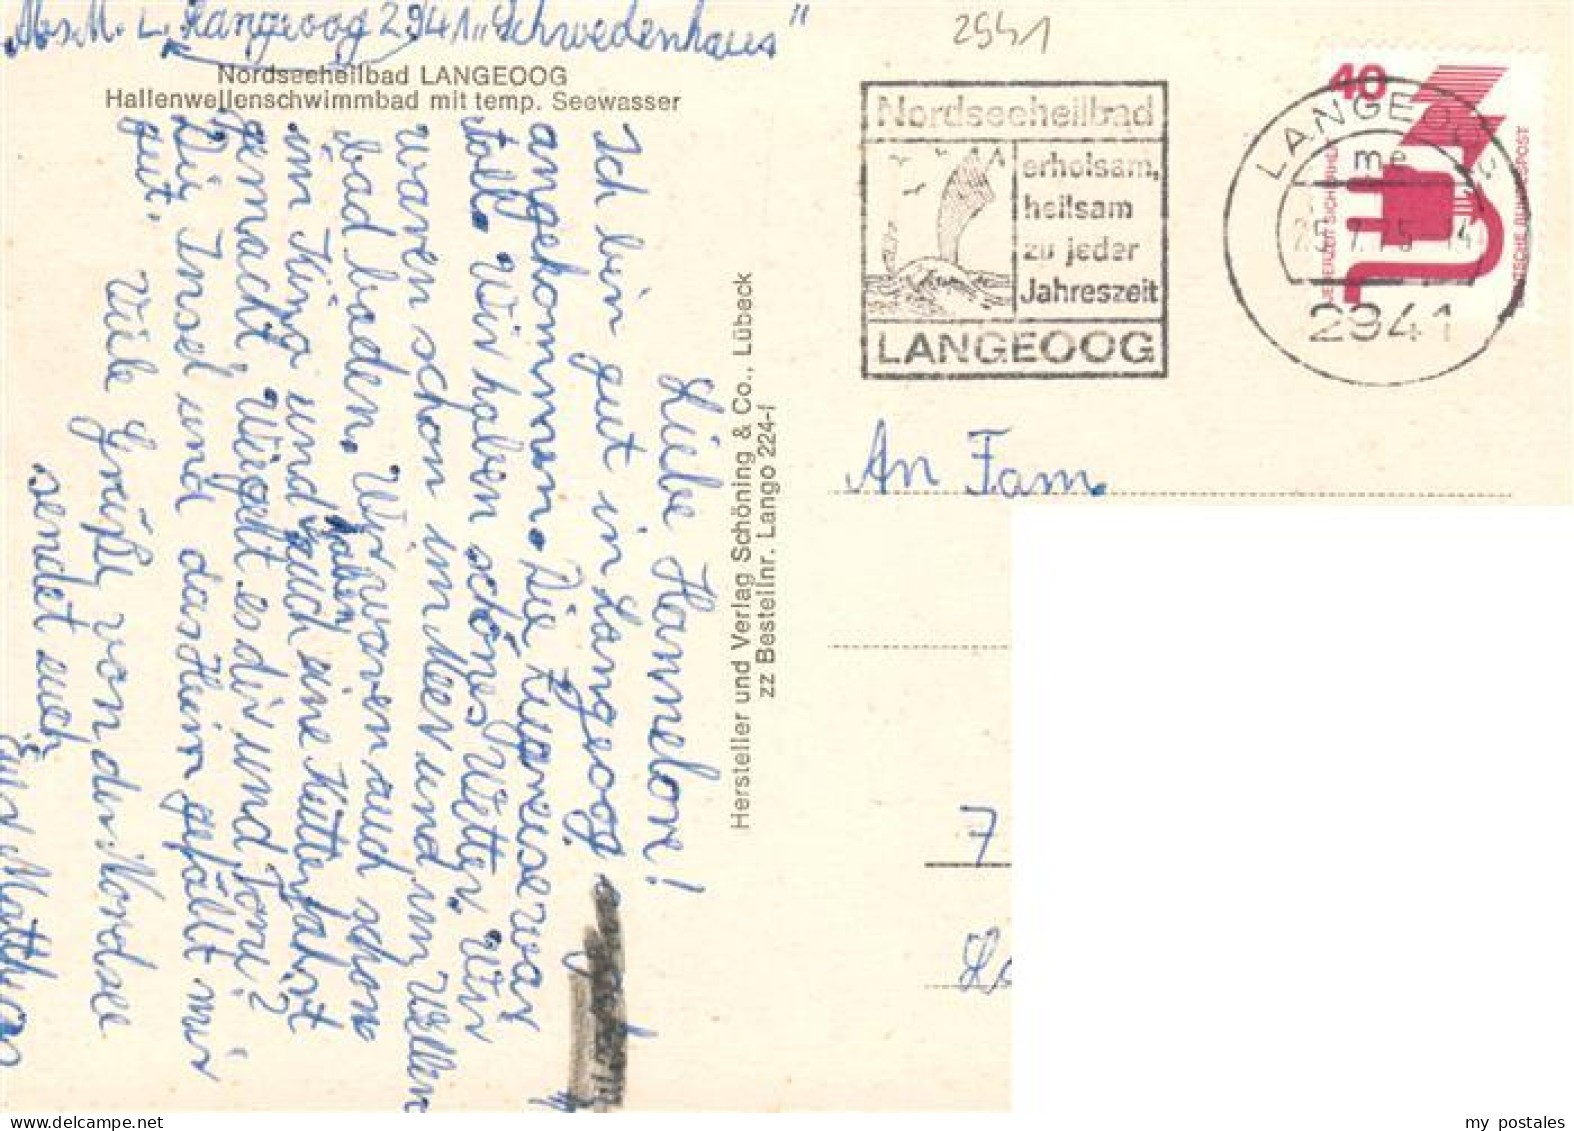 "Abs. M. L. Langeoog 2941 "Schwedenhaus"
2941
Nordseeheilbad LANGEOOG
Hallenwellenschwimmbad mit temp. Seewasser
Liebe Hannelore!
Ich bin gut in Langeoog
angekommen. Die Zugreise war
toll. Wir haben schönes Wetter. Wir
waren schon im Meer und im Wellen
bad baden. Wir waren auch schon
im Kino und haben auch eine Kutterfahrt
gemacht. Wie geht es dir und Toni?
Die Insel und das Heim gefällt mir
gut. Viele Grüße von der Nordsee
sendet euch
euer Matthias
Hersteller und Verlag Schöning & Co., Lübeck
zz Bestellnr. Lango 224-f
Nordseeheilbad
erholsam,
heilsam
zu jeder
Jahreszeit
LANGEOOG
LANGEOOG
me
25.7.75-14
2941
40
JEDERZEIT SICHERHEIT
DEUTSCHE BUNDESPOST
An Fam.
7
my postales